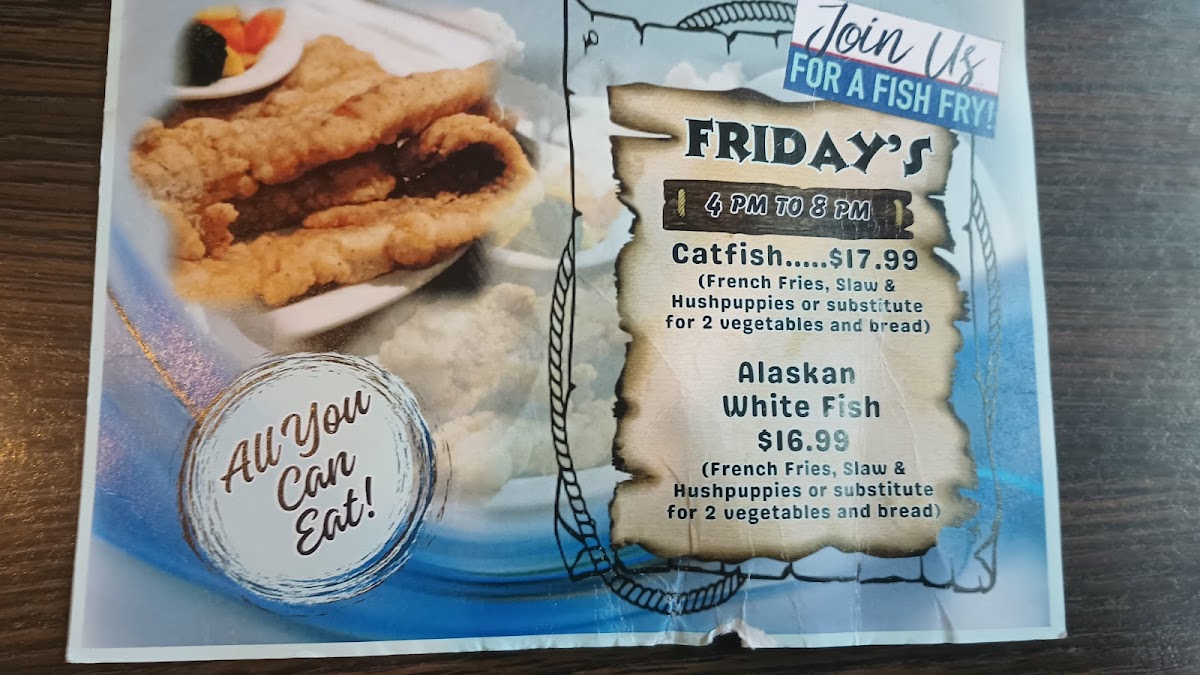 Join Us
FOR A FISH FRY!
FRIDAY'S
4 PM TO 8 PM
Catfish.....$17.99
(French Fries, Slaw &
Hushpuppies or substitute
for 2 vegetables and bread)
Alaskan
White Fish
$16.99
(French Fries, Slaw &
Hushpuppies or substitute
for 2 vegetables and bread)
All You
Can
Eat!